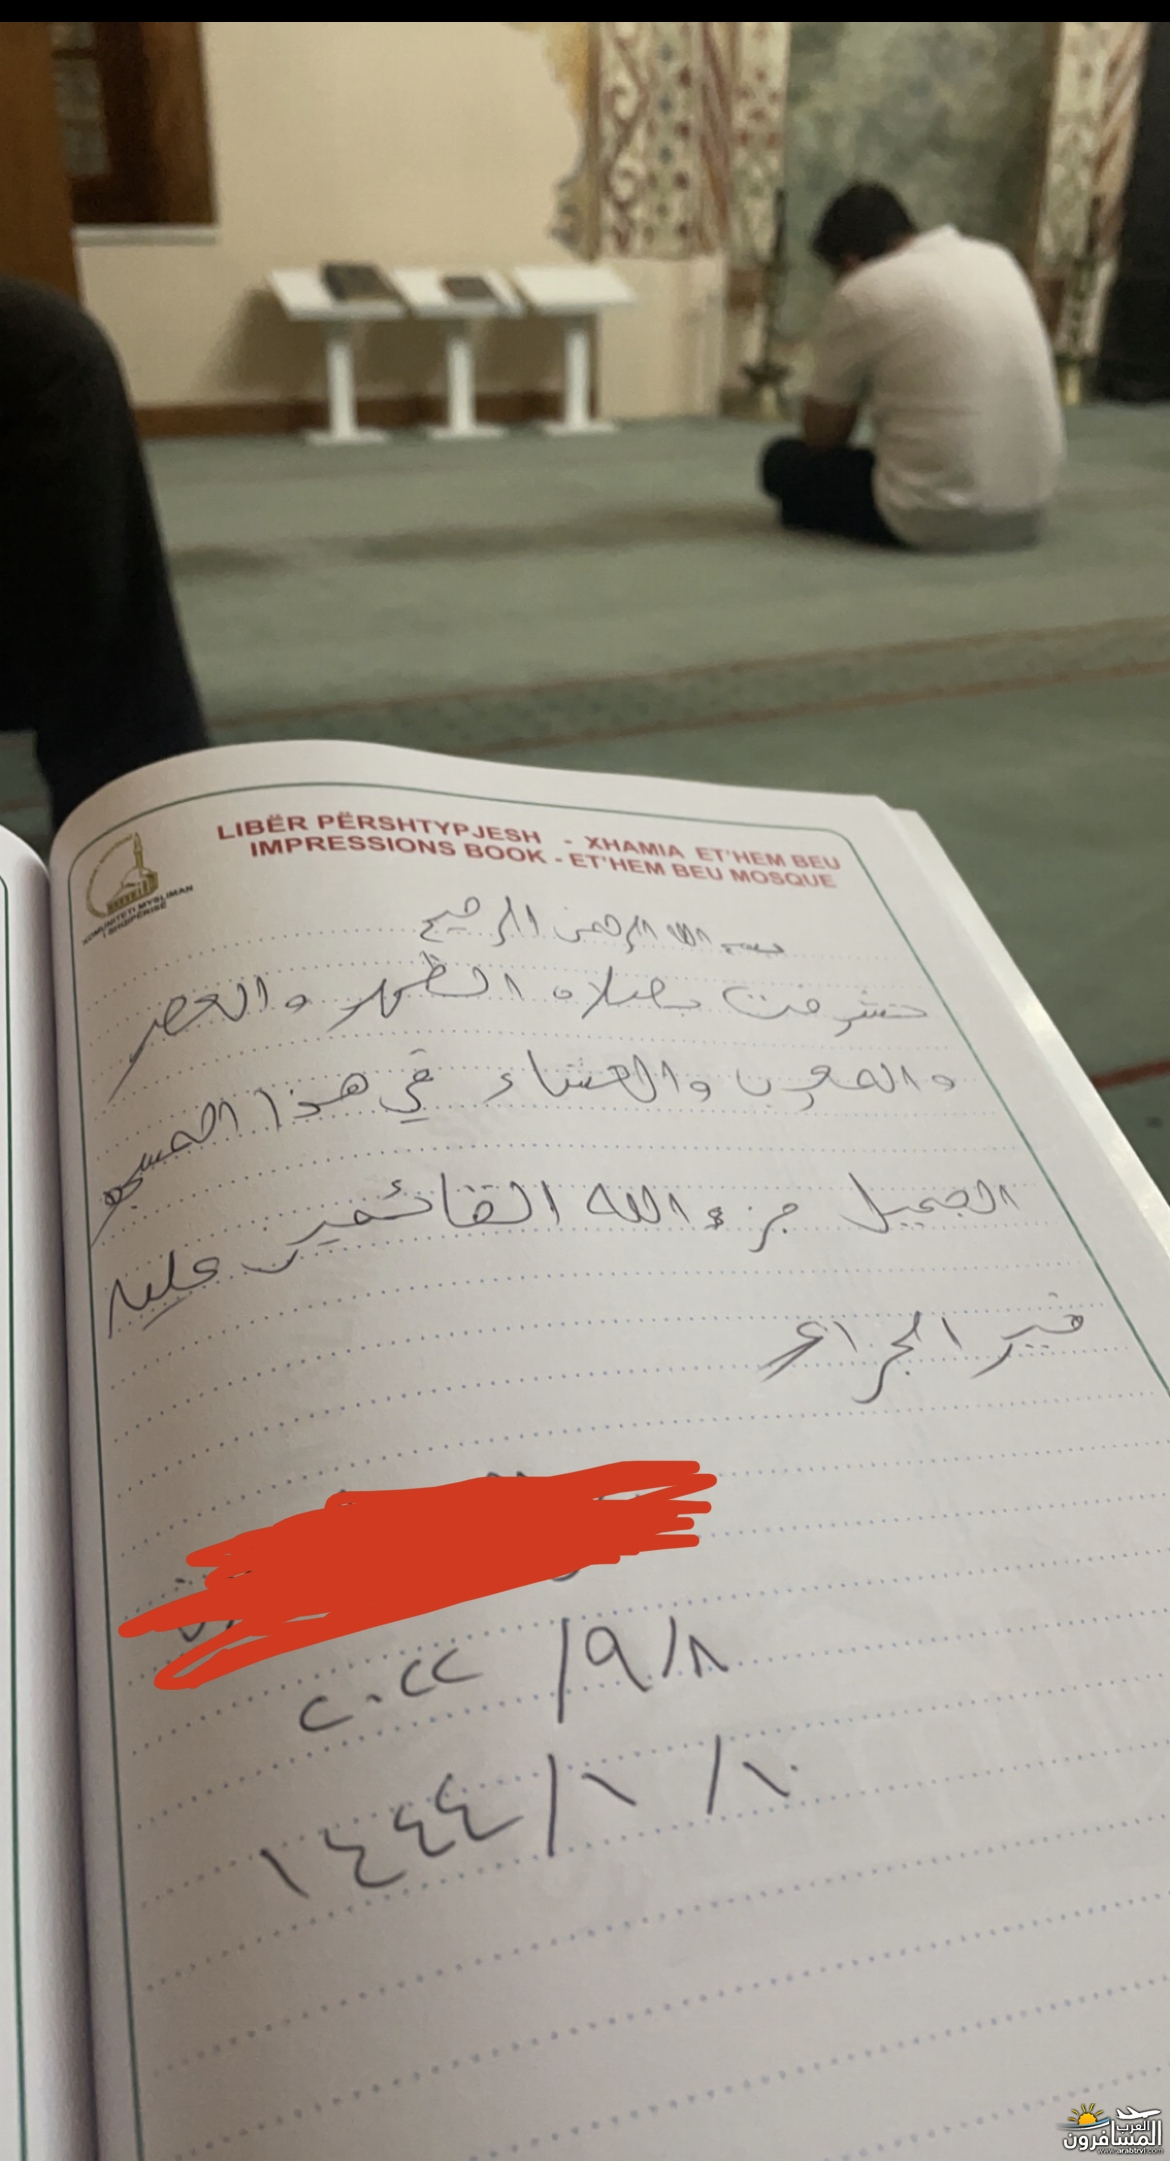 LIBËR PËRSHTYPJESH - XHAMIA ET'HEM BEU
IMPRESSIONS BOOK - ET'HEM BEU MOSQUE
KOMUNITETI MYSLIMAN
I SHQIPËRISË
بسم الله الرحمن الرحيم
تشرفت بصلاة الظهر والعصر
والمغرب والعشاء في هذا المسجد
الجميل جزء الله القائمين عليه
خير الجزاء
٨/٩/٢٠٢٢
١٠/١/١٤٤٤
العرب
المسافرون
www.arabtrvl.com